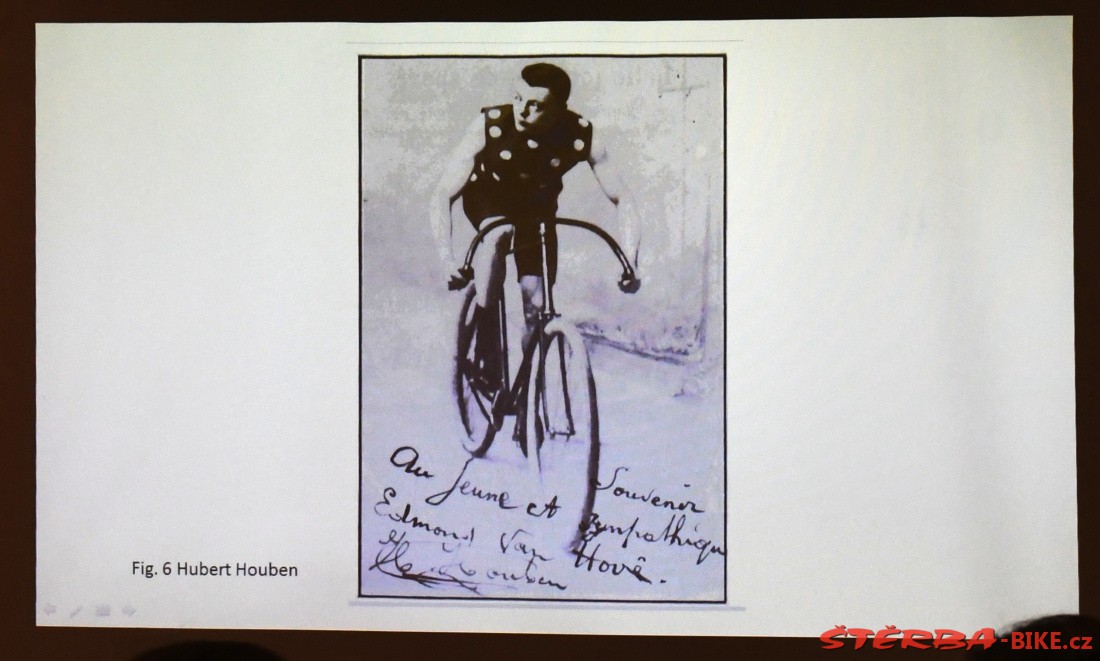 Au Jeune et Souvenir Sympathique
Edmond Van Hove.
H. Houben
Fig. 6 Hubert Houben
ŠTĚRBA-BIKE.cz